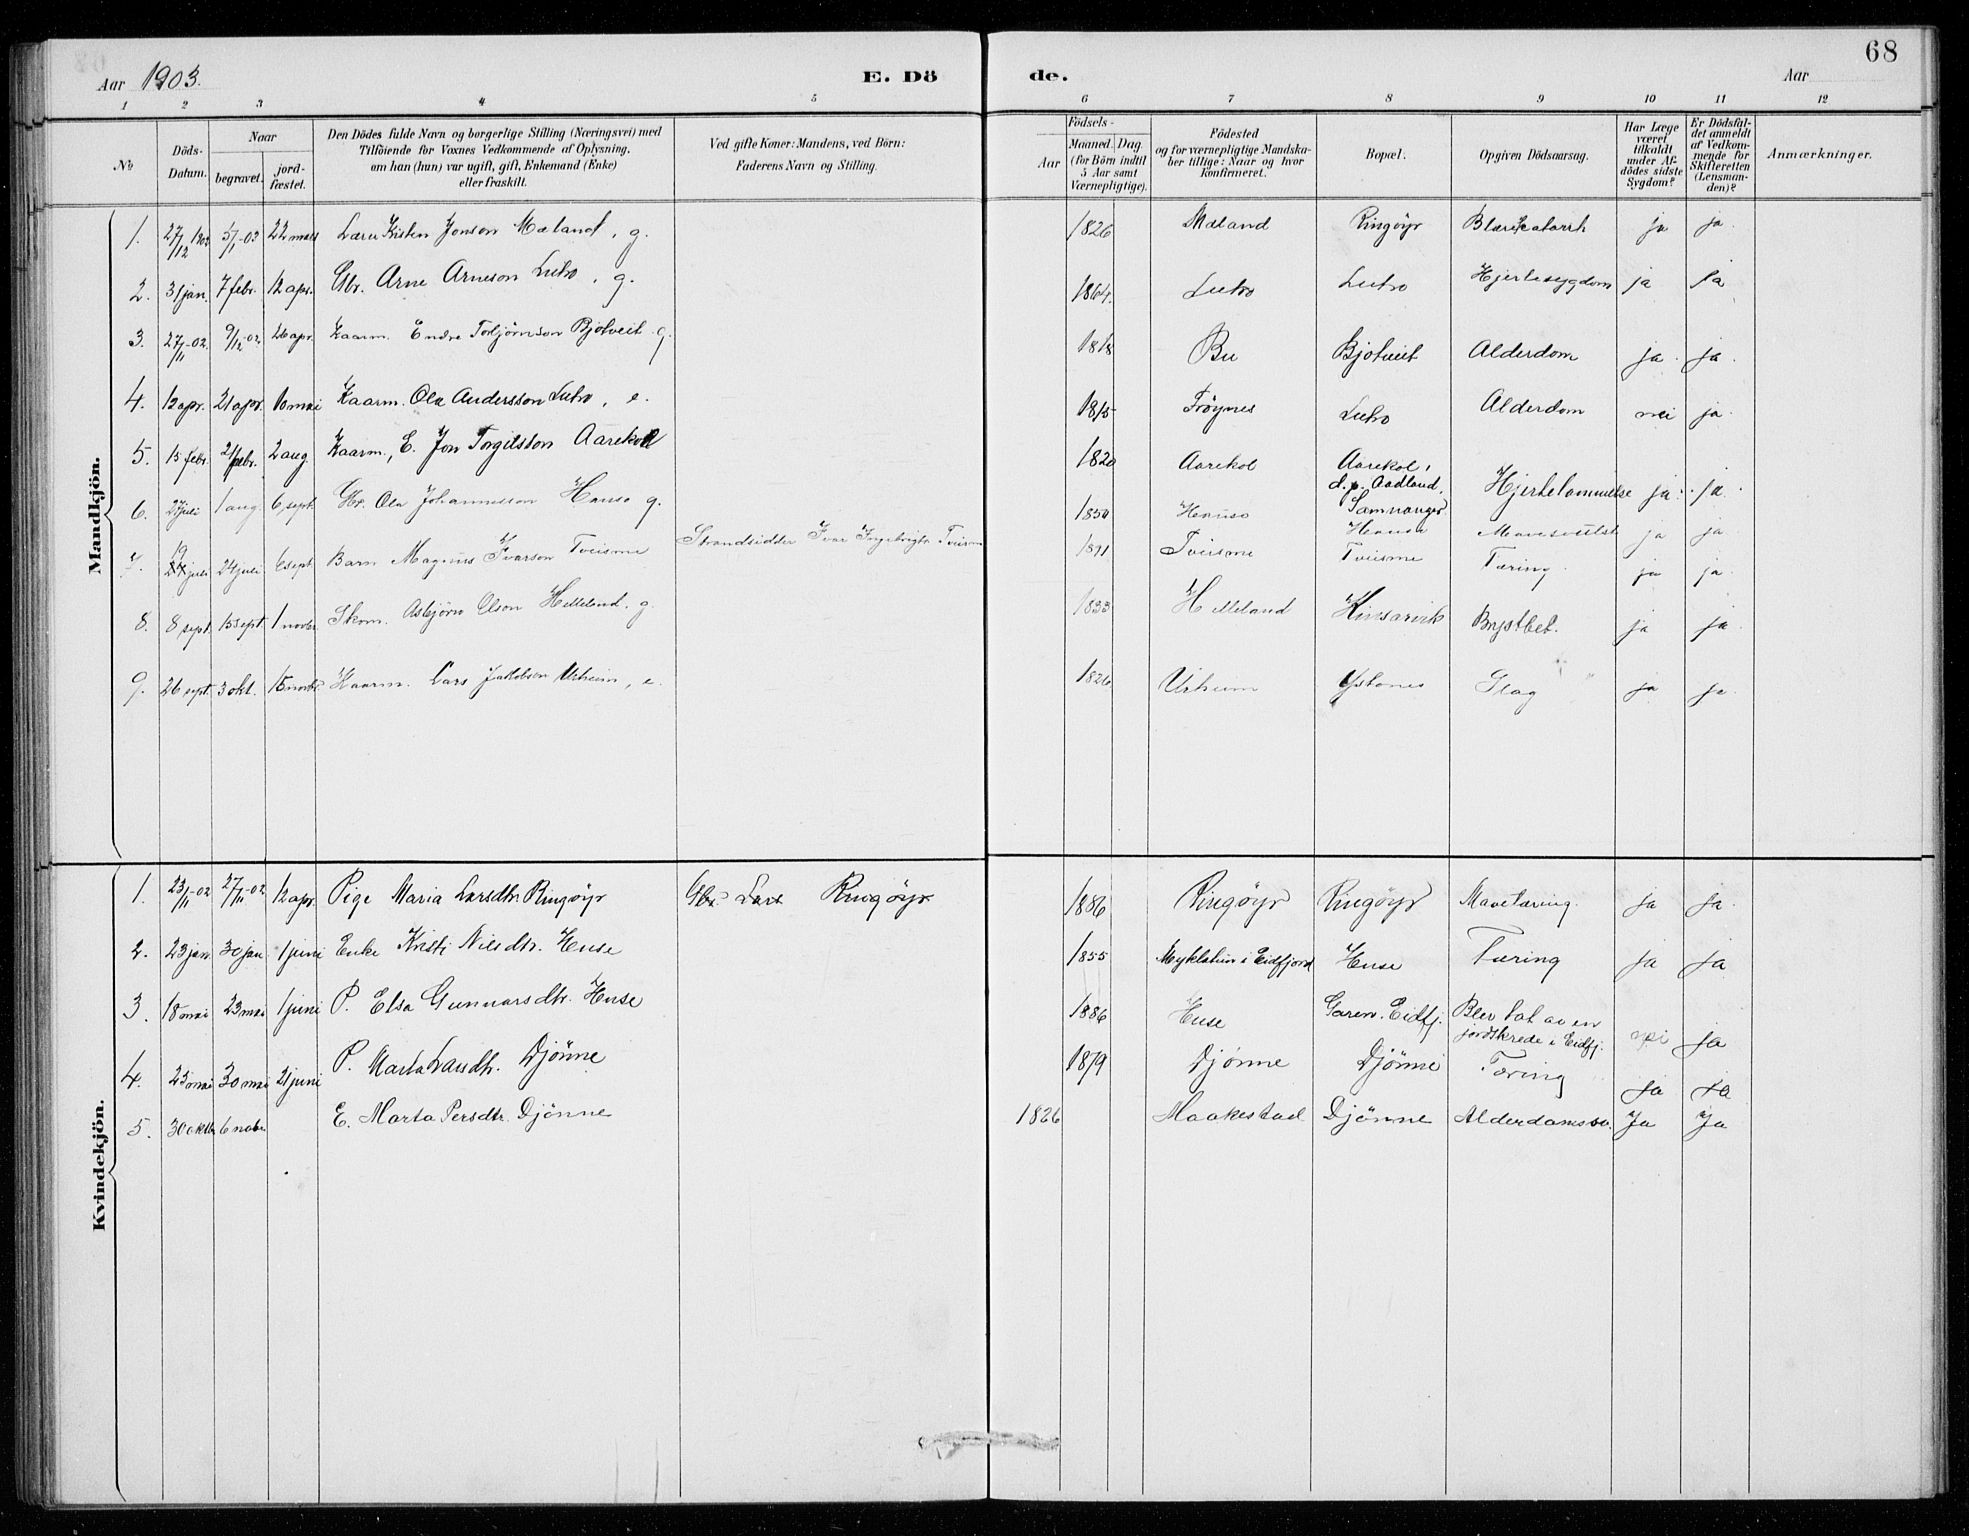 68
Aar 1903.
E. Dö
de.
Aar
1 2 3 4 5 6 7 8 9 10 11 12
No
Döds-Datum.
Naar
begravet.
jord-fæstet.
Den Dödes fulde Navn og borgerlige Stilling (Næringsvei) med
Tilföiende for Voxnes Vedkommende af Oplysning.
om han (hun) var ugift, gift, Enkemand (Enke)
eller fraskilt.
Ved gifte Koner: Mandens, ved Börn:
Faderens Navn og Stilling.
Födsels-
Aar
Maaned. Dag.
(for Börn indtil
5 Aar samt
Værnepligtige).
Födested
og for værnepligtige Mandska-
ber tillige: Naar og hvor
konfirmeret.
Bopæl.
Opgiven Dödsaarsag.
Har Læge
været
tilkaldt
under Af-
dödes sidste
Sygdom?
Er Dödsfal-
det anmeldt
af Vedkom-
mende for
Skifteretten
(Lensman-
den)?
Anmærkninger.
Mandkjön.
1. 27/12 1902 5/1-03 22 mars Kristen Jonson Mæland, g. 1826 Mæland Ringöyr Blærekatarrh ja ja.
2. 31 jan. 7 febr. 12 apr. Gbr. Arne Arneson Lutro, g. 1864. Lutro Lutro Hjertesygdom ja ja
3. 27/11-02. 9/12-02. 26 apr. Kaarm. Endre Torbjörnson Bjotveit g. 1818 Bu Bjotveit Alderdom ja. ja.
4. 12 apr. 21 apr. 10 mai Kaarm. Ola Andersson Lutro, e. 1815 Fröynes Lutro Alderdom nei ja.
5. 15 febr. 21 febr. 2 aug. Kaarm., E. Jon Torgilsson Aarekol 1820 Aarekol Aarekol,
d.p. Aadland,
Samnanger Hjertelammelse ja. ja.
6. 27 juli 1 aug. 6 sept. Gbr. Ola Johannesson Hauso g. 1850 Hauso Hauso Mavesvulst ja ja.
7. 19 juli 24 juli 6 sept Barn Magnus Ivarson Tveisme Strandsidder Ivar Ingebrigts. Tveisme 1891 Tveisme Tveisme Tæring. ja ja.
8. 8 sept. 13 sept. 1 novbr Skom. Asbjörn Olson Helleland. g. 1833 Helleland Kinsarvik Brystbet. ja ja.
9. 26 sept. 3 okt. 15 novbr. Kaarm. Lars Jakobsen Urheim, e. 1826 Urheim Ystanes Slag ja ja.
Kvindekjön.
1. 23/11-02 27/11-02 12 apr. Pige Maria Larsdtr Ringöyr Gbr. Lars Ringöyr 1886 Ringöyr Ringöyr Mavetæring. ja ja.
2. 23 jan. 30 jan. 1 juni Enke Kristi Nilsdtr. Huse 1855 Myklatun i Eidfjord Huse Tæring ja ja
3. 18 mai 23 mai 1 juni P. Elsa Gunnarsdtr. Huse 1886 Huse Garen. Eidfj. Blev tat av en
jordskrede i Eidfj. nei ja
4. 25 mai 30 mai 21 juni P. Marta Larsdtr. Djönne 1879 Djönne Djönne Tæring ja ja
5. 30 oktbr 6 nobr. E. Marta Persdtr. Djönne 1826 Maakestad Djönne Ja Ja